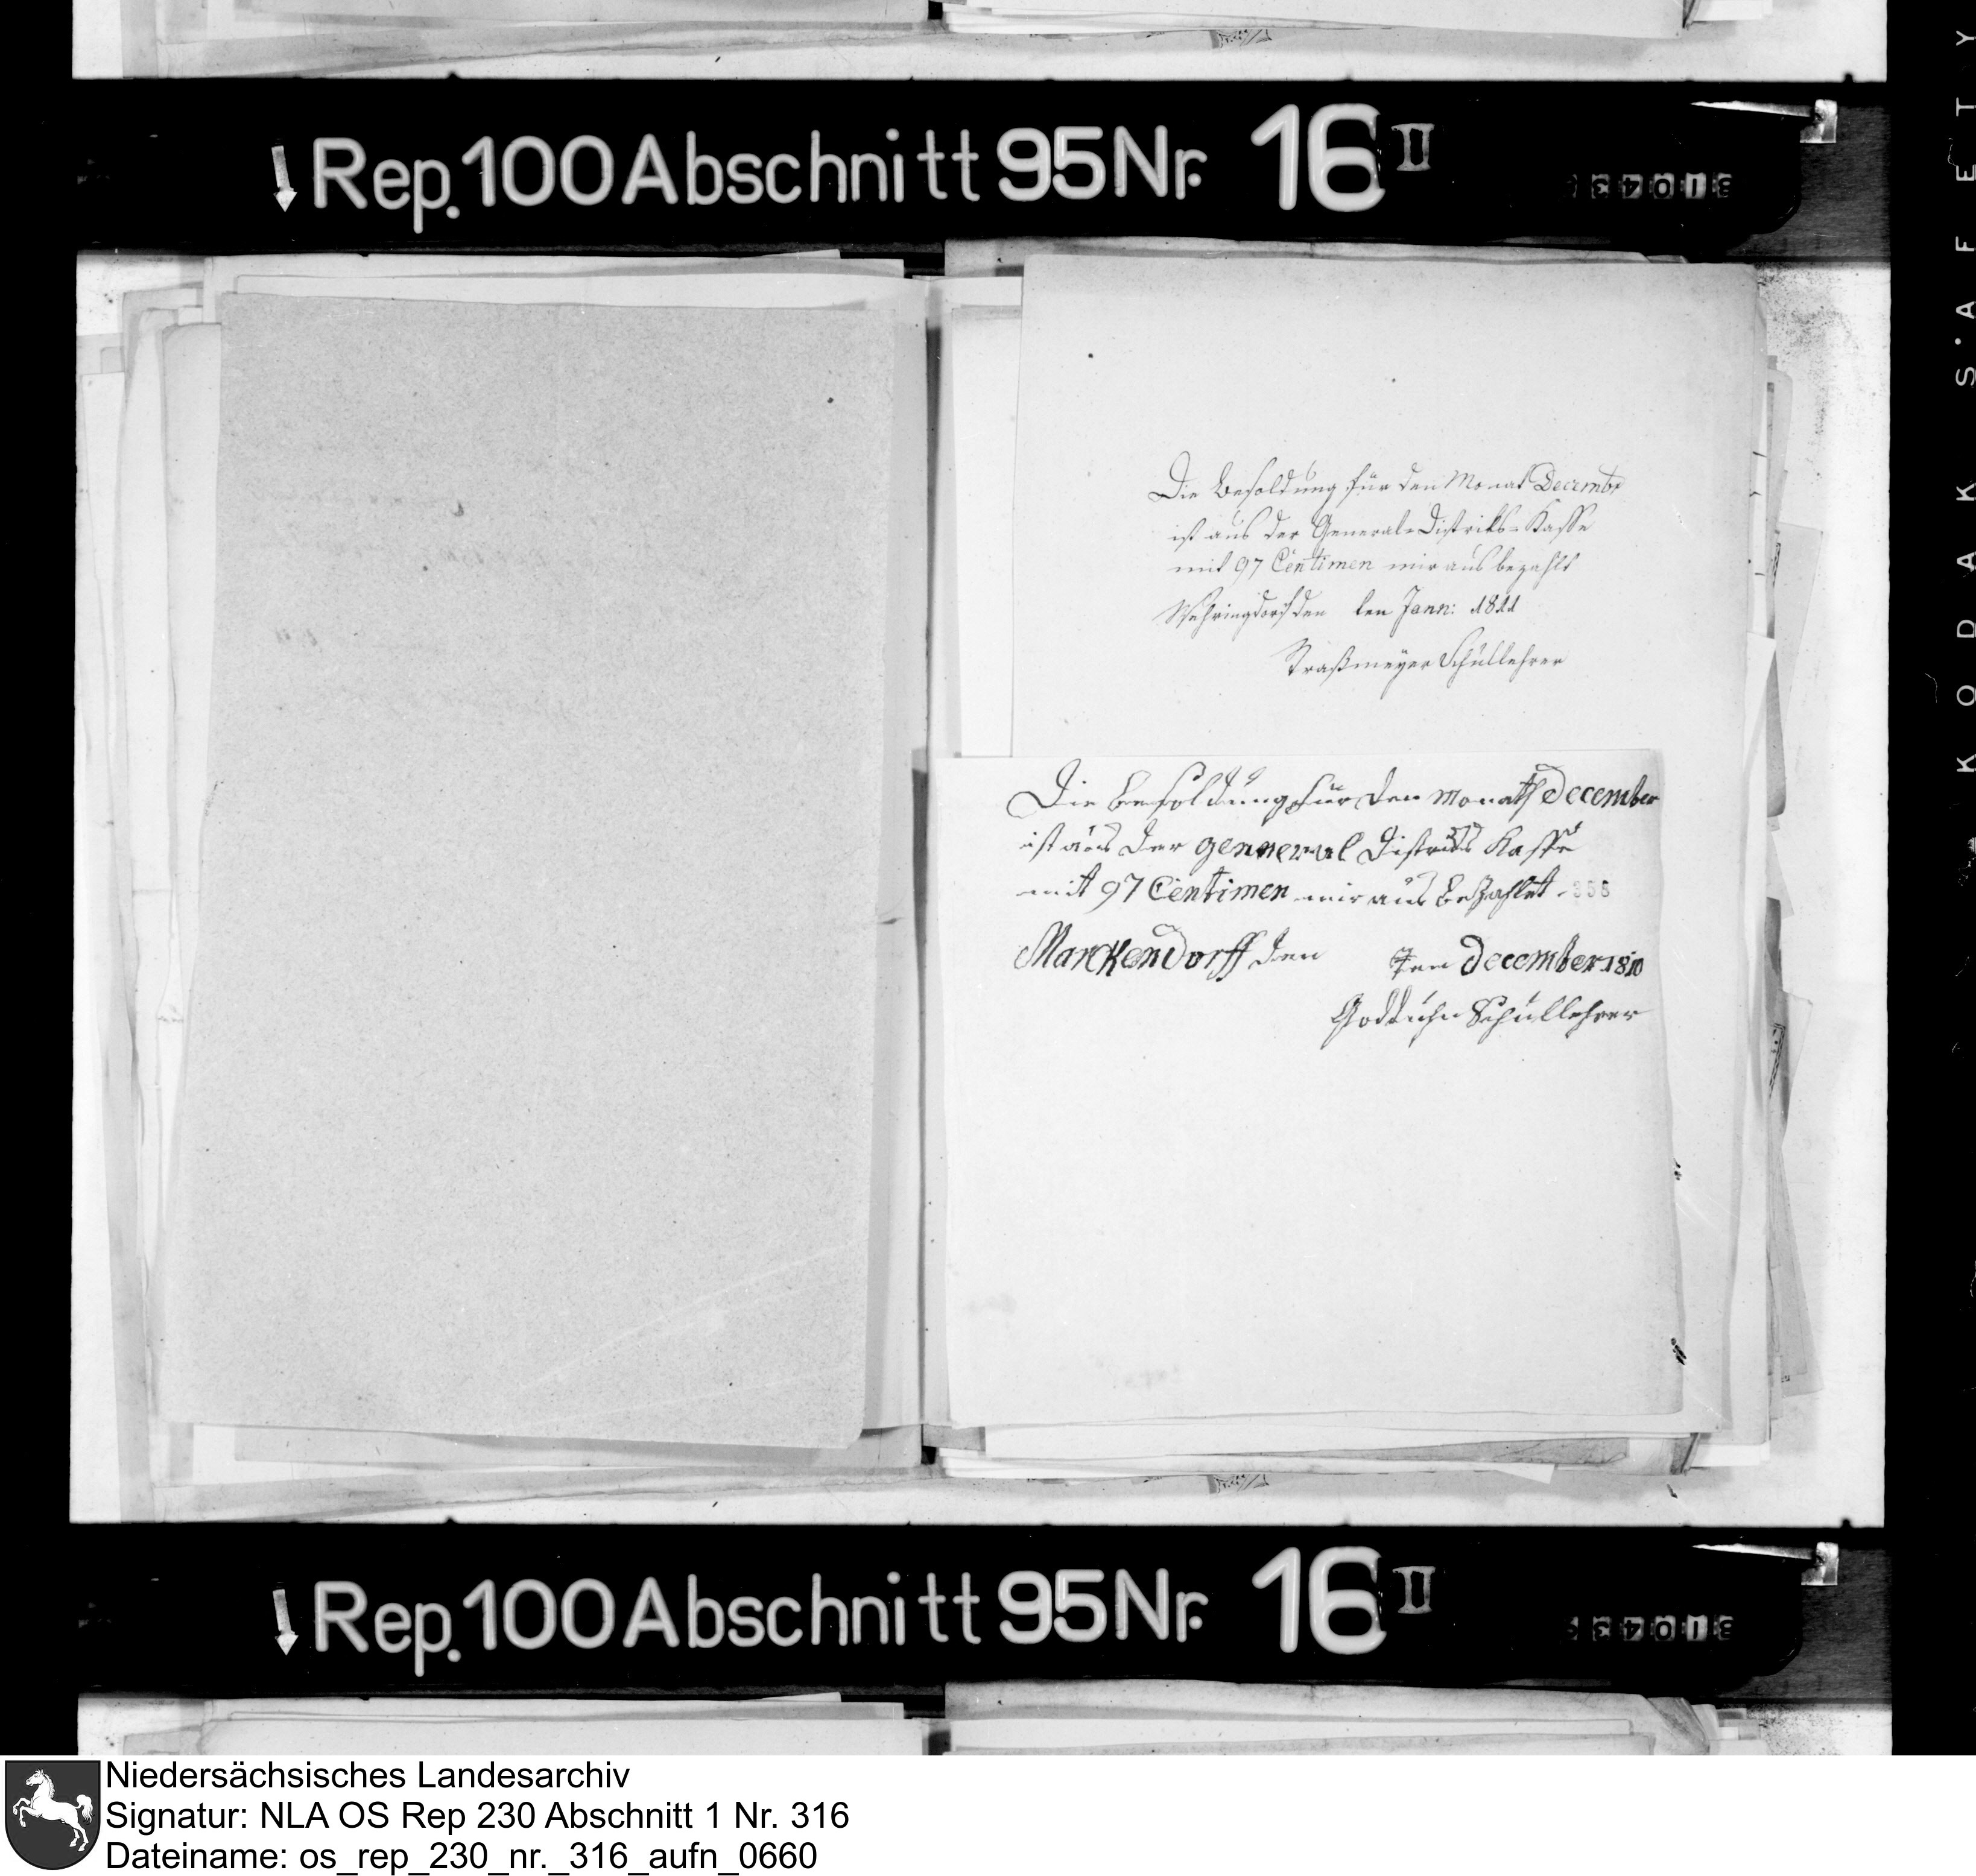 ↓Rep.100Abschnitt 95Nr. 16 II
Die Besoldung für den Monat Decembr
ist aus der General-Distrikts-Kasse
mit 97 Centimen mir ausbezahlt
Wehringdorf den ten Jann: 1811
Straßmeyer Schullehrer
Die Besoldung für den Monath December
ist aus der genneral Districts Kasse
mit 97 Centimen mir aus Bezahlet
358
Marckendorff den ten December 1810
Schullehrer
↓Rep.100Abschnitt 95Nr. 16 II
KODAK S.AFETY
Niedersächsisches Landesarchiv
Signatur: NLA OS Rep 230 Abschnitt 1 Nr. 316
Dateiname: os_rep_230_nr._316_aufn_0660